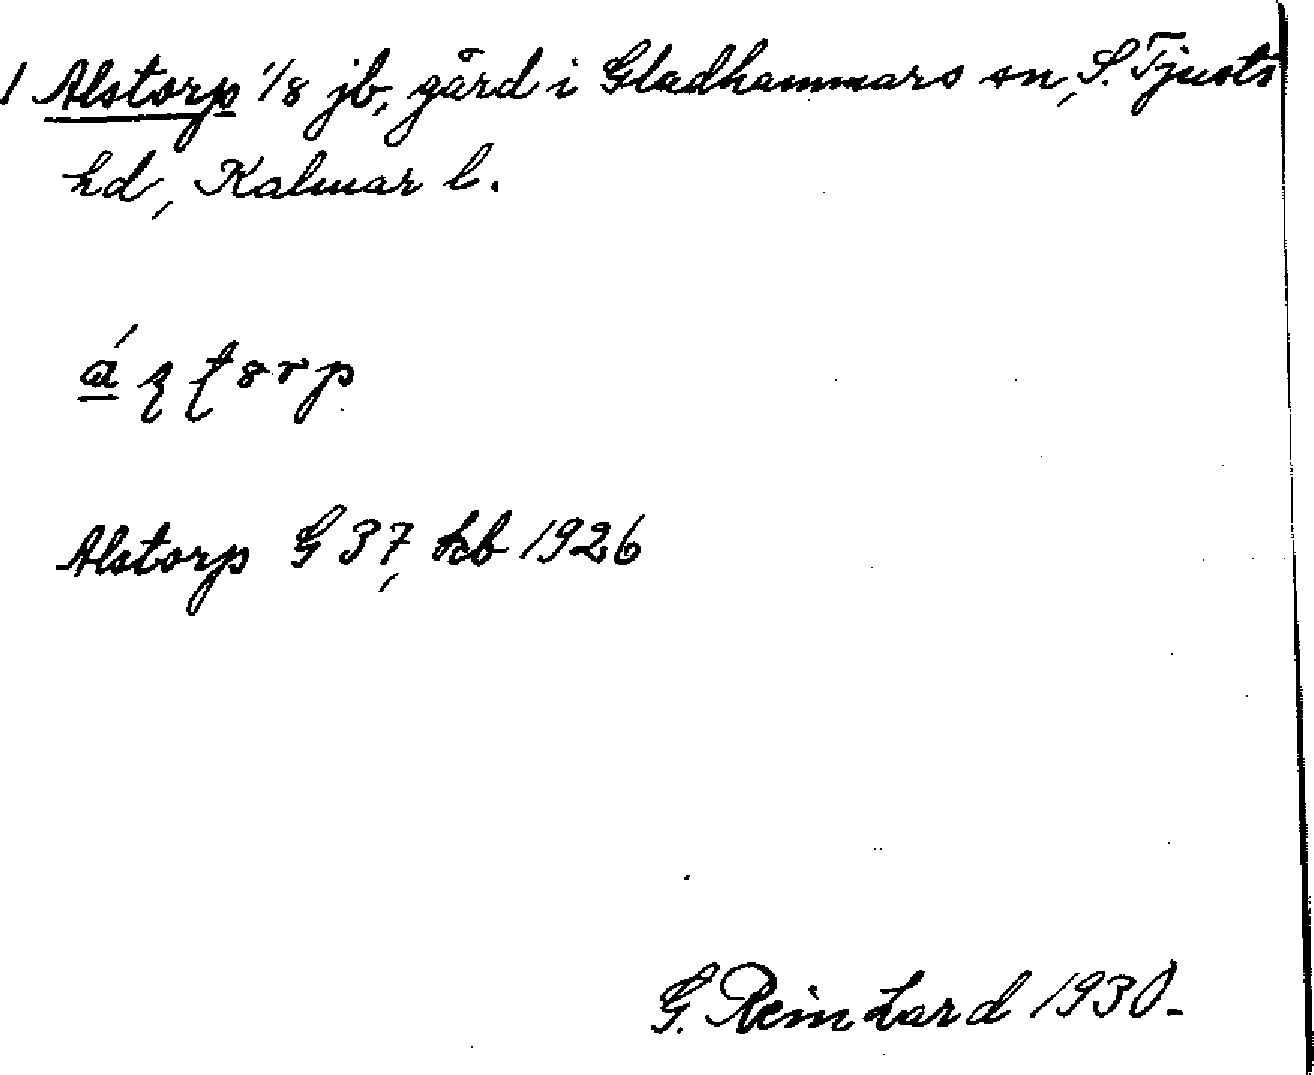 1 Alstorp 1/8 jb, gård i Gladhammars sn, S. Tjusts
hd, Kalmar l.
Alstorp G 37, hb 1926
G. Reinhard 1930.